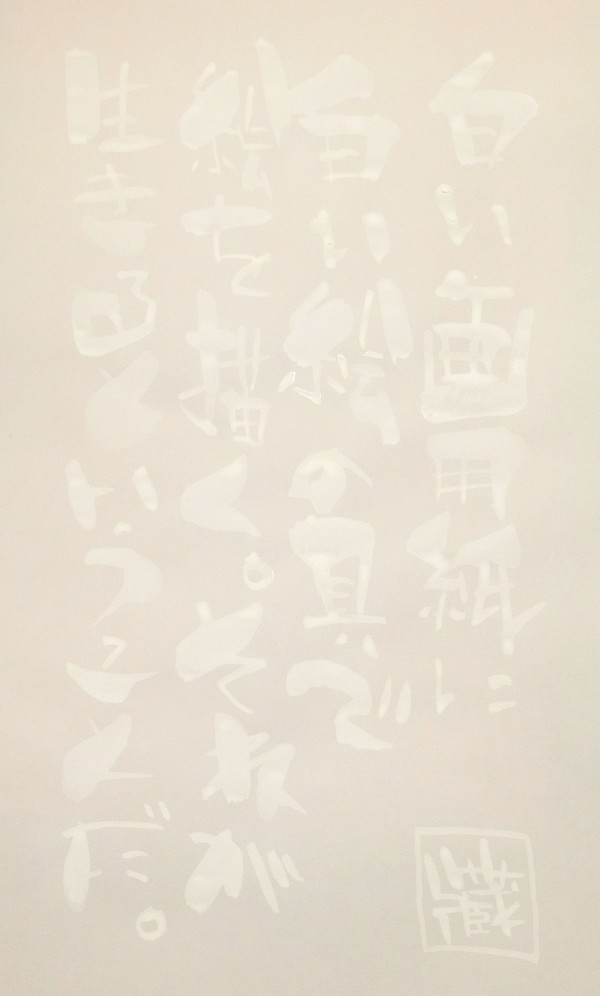 白い画用紙に
白い絵の具で
絵を描く。それが
生きるということだ。